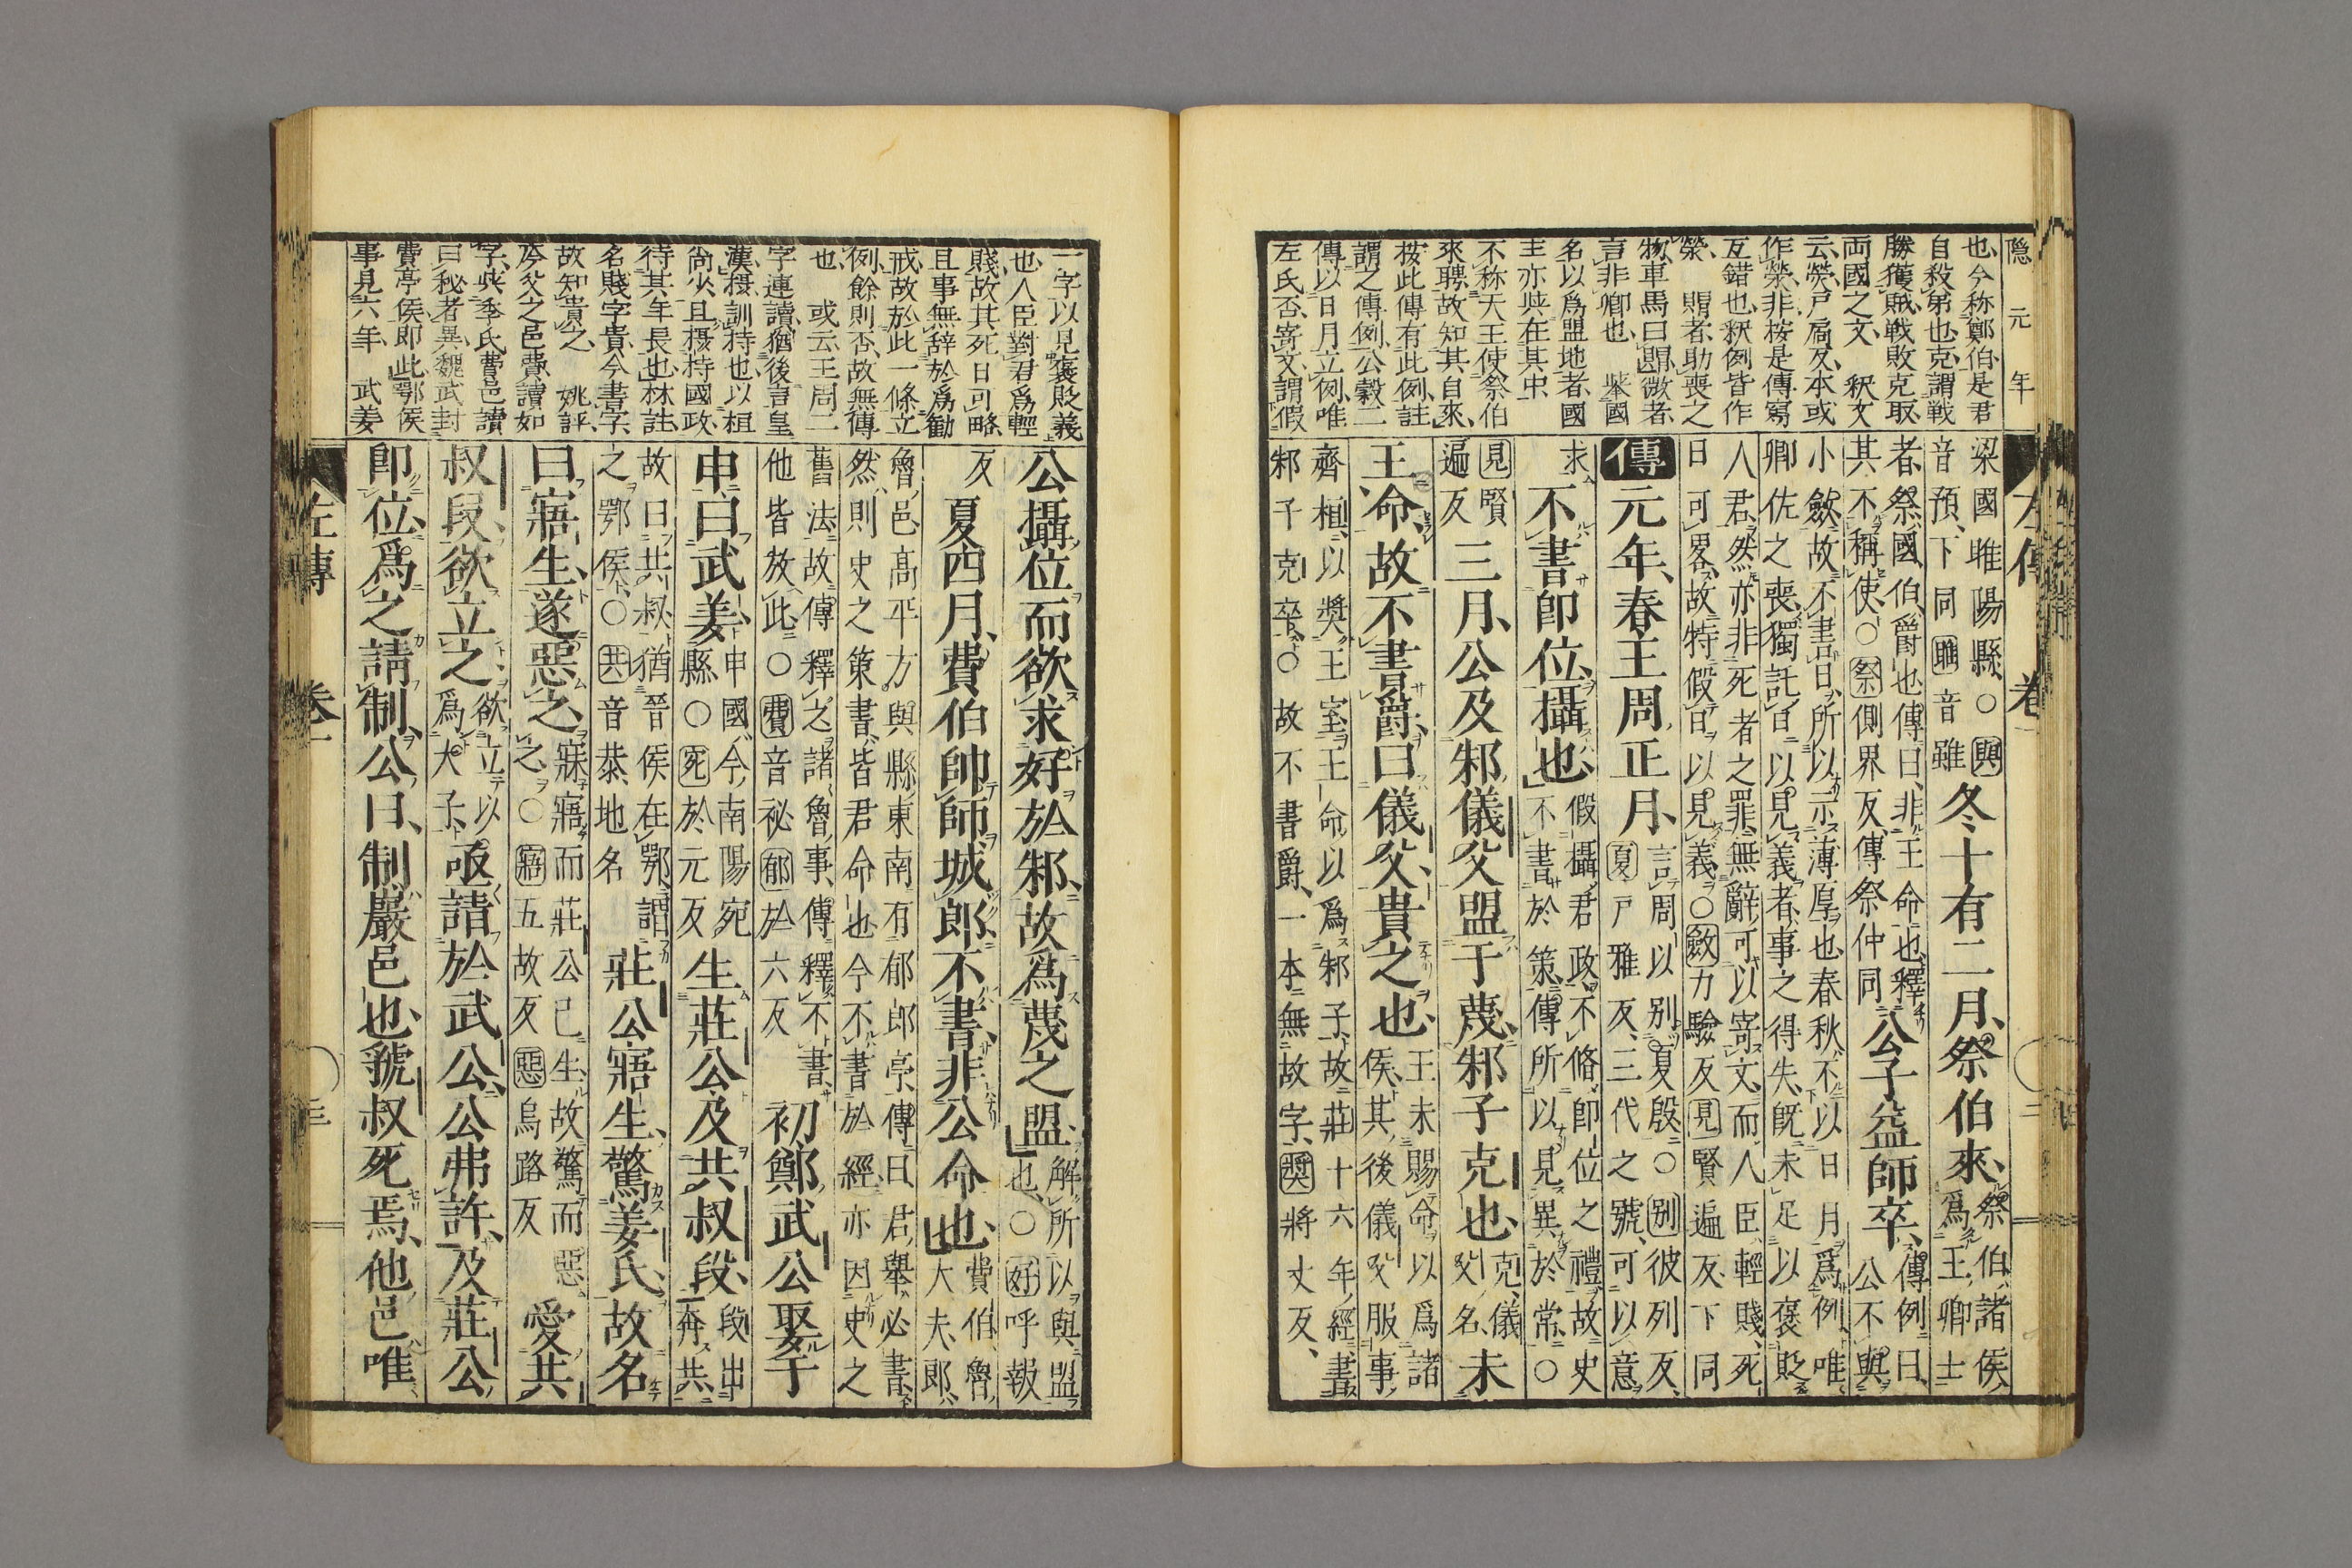 隠元年
也、今称鄭伯、是君
自殺弟也、克謂戦
勝獲賊、戦敗克取
両國之文、釈文
云、熒戸扃反、本或
作榮、非、按是傳寫
互錯也、釈例皆作
榮、賵者、助喪之
物、車馬曰賵、微者、
言非卿也、挙國
名以爲盟地者、國
主亦與在其中
不称天王使、祭伯
來聘、故知其自來、
按此傳有此例、註
謂之傳例、公穀二
傳以日月立例、唯
左氏否、寄文、謂假
梁國睢陽縣、○與
音預、下同賵音雖
冬十有二月、祭伯來、
祭伯、諸侯、
爲王卿士
者、祭國、伯、爵也、傳曰、非王命也、釋
其不稱使、○祭側界反、傳祭仲同
公子益師卒、
傳例曰、
公不與
小斂、故不書日、所以示薄厚也、春秋不以日月爲例、唯
卿佐之喪、獨託日以見義者、事之得失、既未足以褒貶
人君、然亦非死者之罪、無辭可以寄文、而人臣輕賤、死
日可畧、故特假日以見義、○斂力驗反見賢遍反、下同
傳元年、春王周正月、
言周以别夏殷、○别彼列反、
夏戸雅反、三代之號、可以意
求
不書即位、攝也、
假攝君政、不脩即位之禮、故史
不書於策、傳所以見異於常、○
見賢
遍反
三月、公及邾儀父盟于蔑、邾子克也、
克、儀
父名
未
王命、故不書爵、曰儀父、貴之也、
王未賜命以爲諸
侯、其後儀父服事
齊桓、以奬王室、王命以爲邾子、故莊十六年、經書
邾子克卒、○故不書爵、一本無故字、奬將丈反、
一字以見褒貶義
也、人臣對君爲輕
賤、故其死日可略、
且事無辞於爲勧
戒、故於此一條立
例、餘則否、故無傳
也、或云、王周二
字連讀、猶後言皇
漢、摂、訓持也、以桓
尚少、且摂持國政、
待其年長也、林註、
名賤字貴、今書字、
故知貴之、姚評、
費亭侯、即此、鄂侯
事見六年、武姜
公攝位而欲求好於邾、故爲蔑之盟、
解所以與盟
也、○好呼報
反
夏四月、費伯帥師城郎、不書、非公命也、
費伯、魯
大夫、郎、
魯邑、高平方與縣東南有郁郎亭、傳曰、君舉必書、
然則史之策書、皆君命也、今不書於經、亦因史之
舊法、故傳釋之、諸魯事、傳釋不書、
他皆放此、○費音祕郁於六反
初、鄭武公娶于
申、曰武姜、
申國、今南陽宛
縣○宛於元反
生莊公、及共叔段、
段出
奔共、
故曰共叔、猶晉侯在鄂、謂
之鄂侯、○共音恭、地名
莊公寤生、驚姜氏、故名
曰寤生、遂惡之、
寐寤而莊公已生、故驚而惡
之、○寤五故反惡烏路反
愛共
叔段、欲立之、
欲立以
爲大子、
亟請於武公、公弗許、及莊公
即位、爲之請制、公曰、制巖邑也、虢叔死焉、他邑唯
左傳
卷一
三